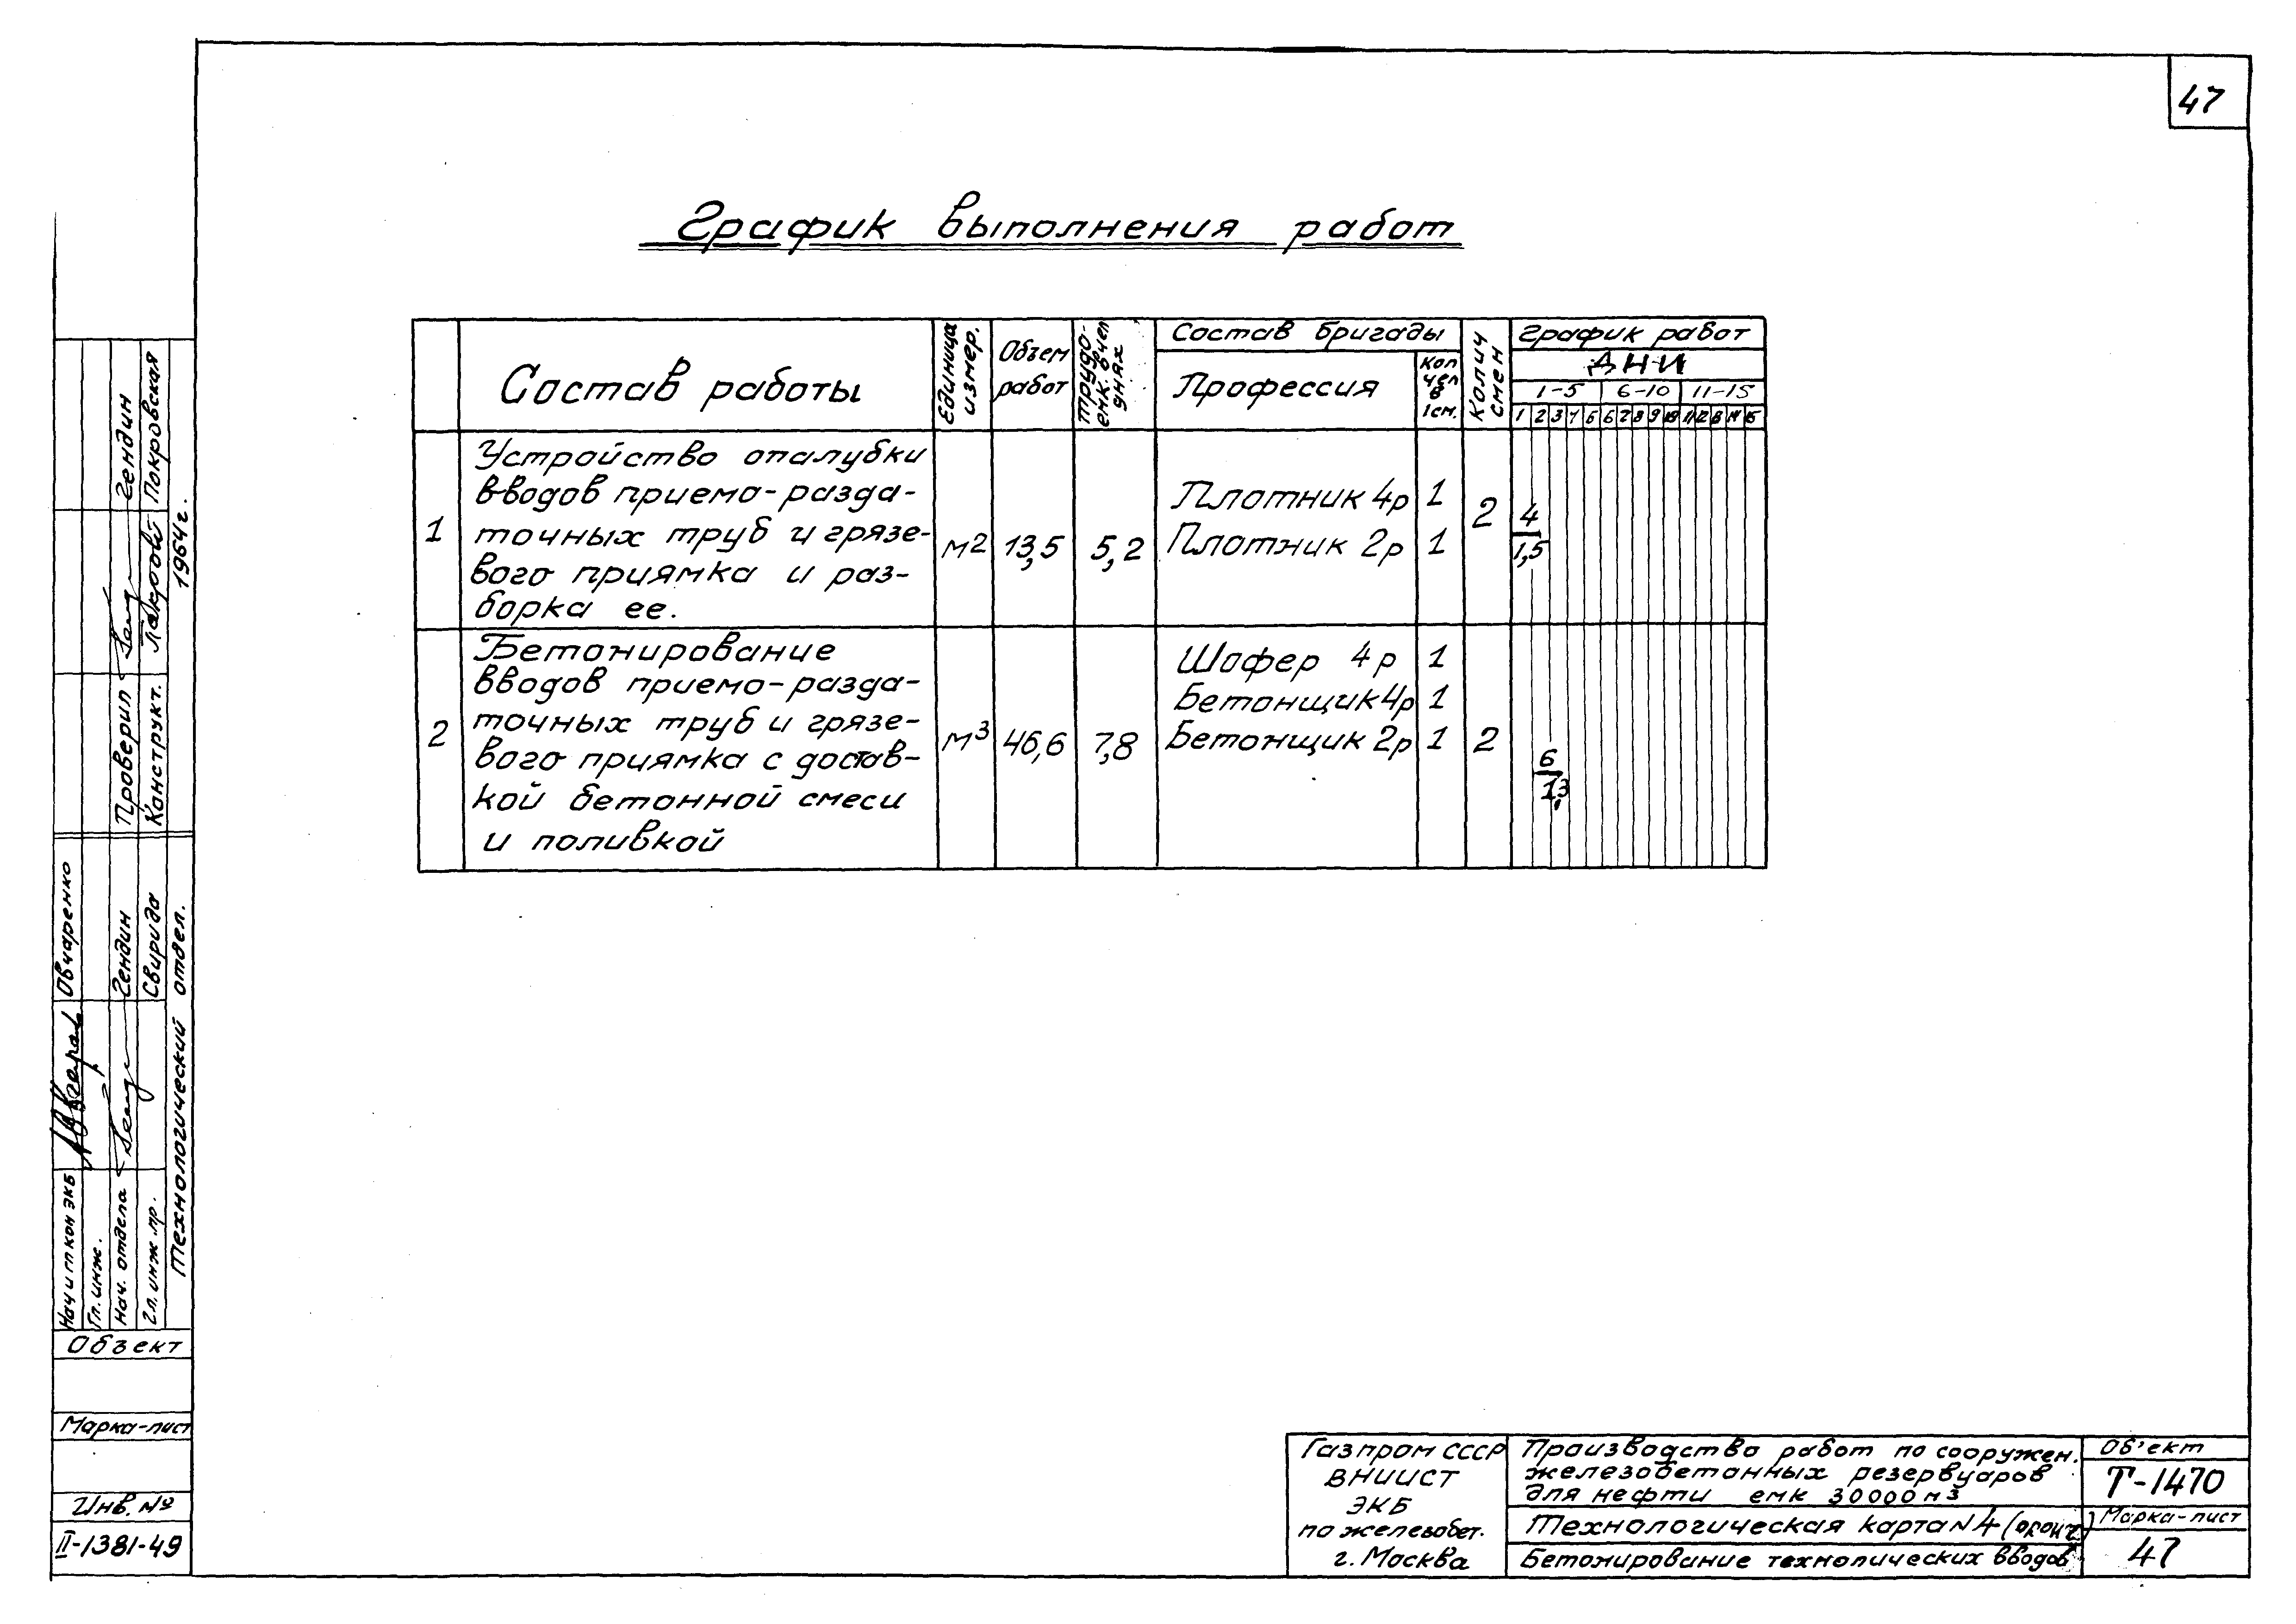 47
График выполнения работ
Состав работы
Единица измер.
Объем работ
Трудоемк. в чел днях
Состав бригады
Профессия
Кол чел в 1см.
Колич смен
График работ
ДНИ
1-5 6-10 11-15
1 2 3 4 5 6 7 8 9 10 11 12 13 14 15
1
Устройство опалубки
вводов приемо-разда-
точных труб и грязе-
вого приямка и раз-
борка ее.
м2
13,5
5,2
Плотник 4р 1
Плотник 2р 1
2
4
1,5
2
Бетонирование
вводов приемо-разда-
точных труб и грязе-
вого приямка с достав-
кой бетонной смеси
и поливкой
м3
46,6
7,8
Шофер 4р 1
Бетонщик 4р 1
Бетонщик 2р 1
2
6
1,3
Газпром СССР
ВНИИСТ
ЭКБ
по железобет.
г. Москва
Производство работ по сооружен.
железобетонных резервуаров
для нефти емк 30000м3
Технологическая карта N4
Бетонирование технологических вводов
Об'ект
Т-1470
Марка-лист
47
Проверил Гендин
Конструкт. Покровская
1964г.
Овчаренко
Гл. инж.
Нач. отдела Гендин
Гл. инж. пр. Свирида
Технологический отдел.
Объект
Марка-лист
Инв. №
II-1381-49